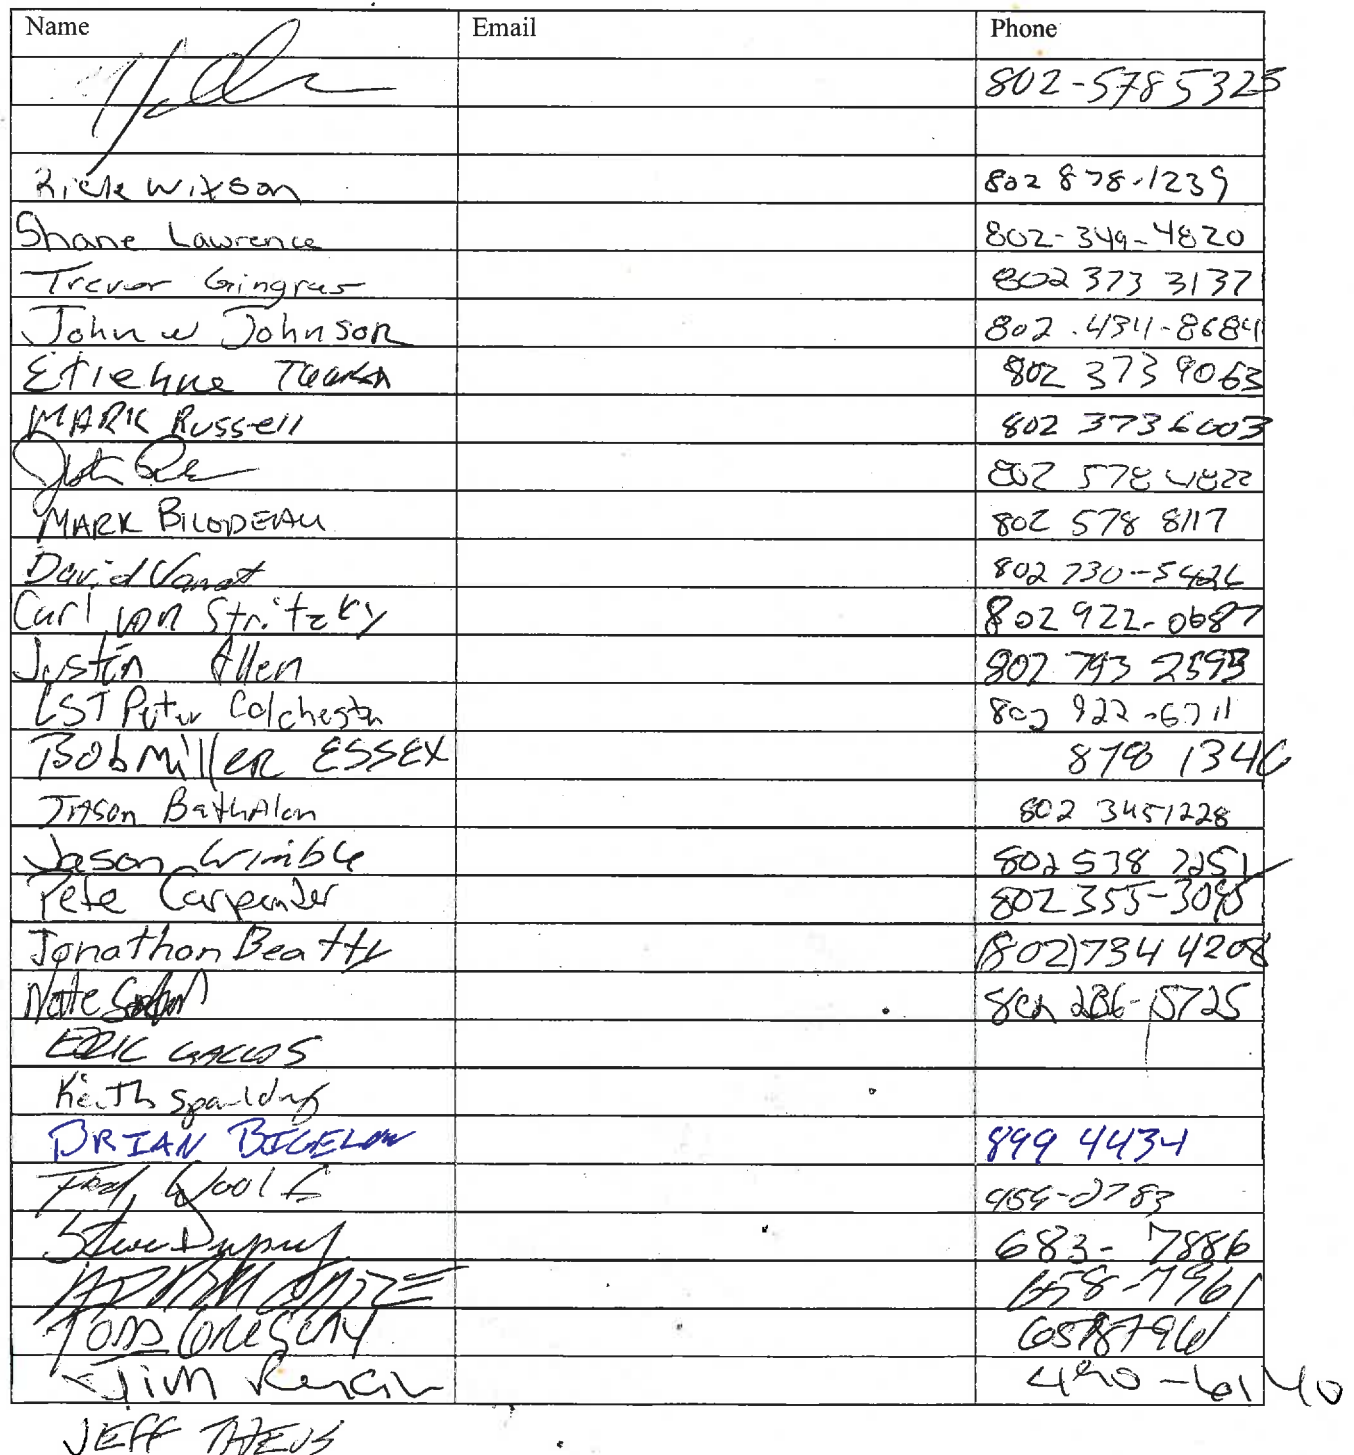 Name Email Phone
802-578 5325
Rick Wixson 802 878-1239
Shane Lawrence 802-349-4820
Trevor Gingras 802 373 3137
John W Johnson 802.434-8684
Etienne 802 373 9063
MARK Russell 802 373 6003
802 578 4822
MARK BILODEAU 802 578 8117
David 802 730-5426
Carl von Stritzky 802 922-0687
Justin Allen 802 793 2593
LST Peter Colchester 802 922-6711
Bob Miller ESSEX 878 1346
JASon BathAlon 802 3451228
Jason Wimble 802 538 7251
Pete Carpenter 802 355-3095
Jonathon Beatty (802)734 4208
Nate
ERIC
Keith Spaulding
BRIAN BIGELOW 899 4434
Woolf
Steve Dupuy 683-7886
658-7961
TODD GREGORY 6587961
Jim 490-6140
JEFF